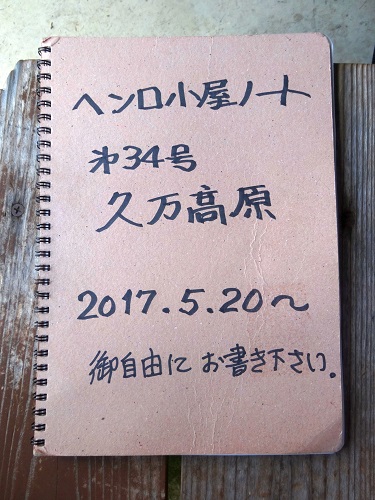 ヘンロ小屋ノート
㐧34号
久万高原
2017.5.20〜
御自由に お書き下さい。